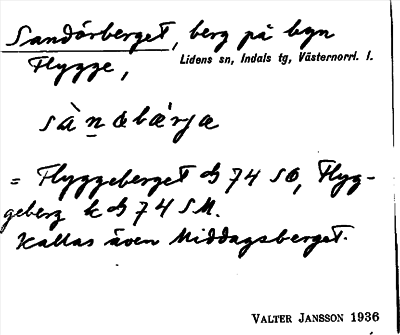 Sandörberget, berg på byn
Flygge,
Lidens sn, Indals tg, Västernorrl. l.
sàn̠œbœ́rjœ
= Flyggeberget 74 SO, Flyg-
geberg k 74 SM.
Kallas även Middagsberget.
VALTER JANSSON 1936